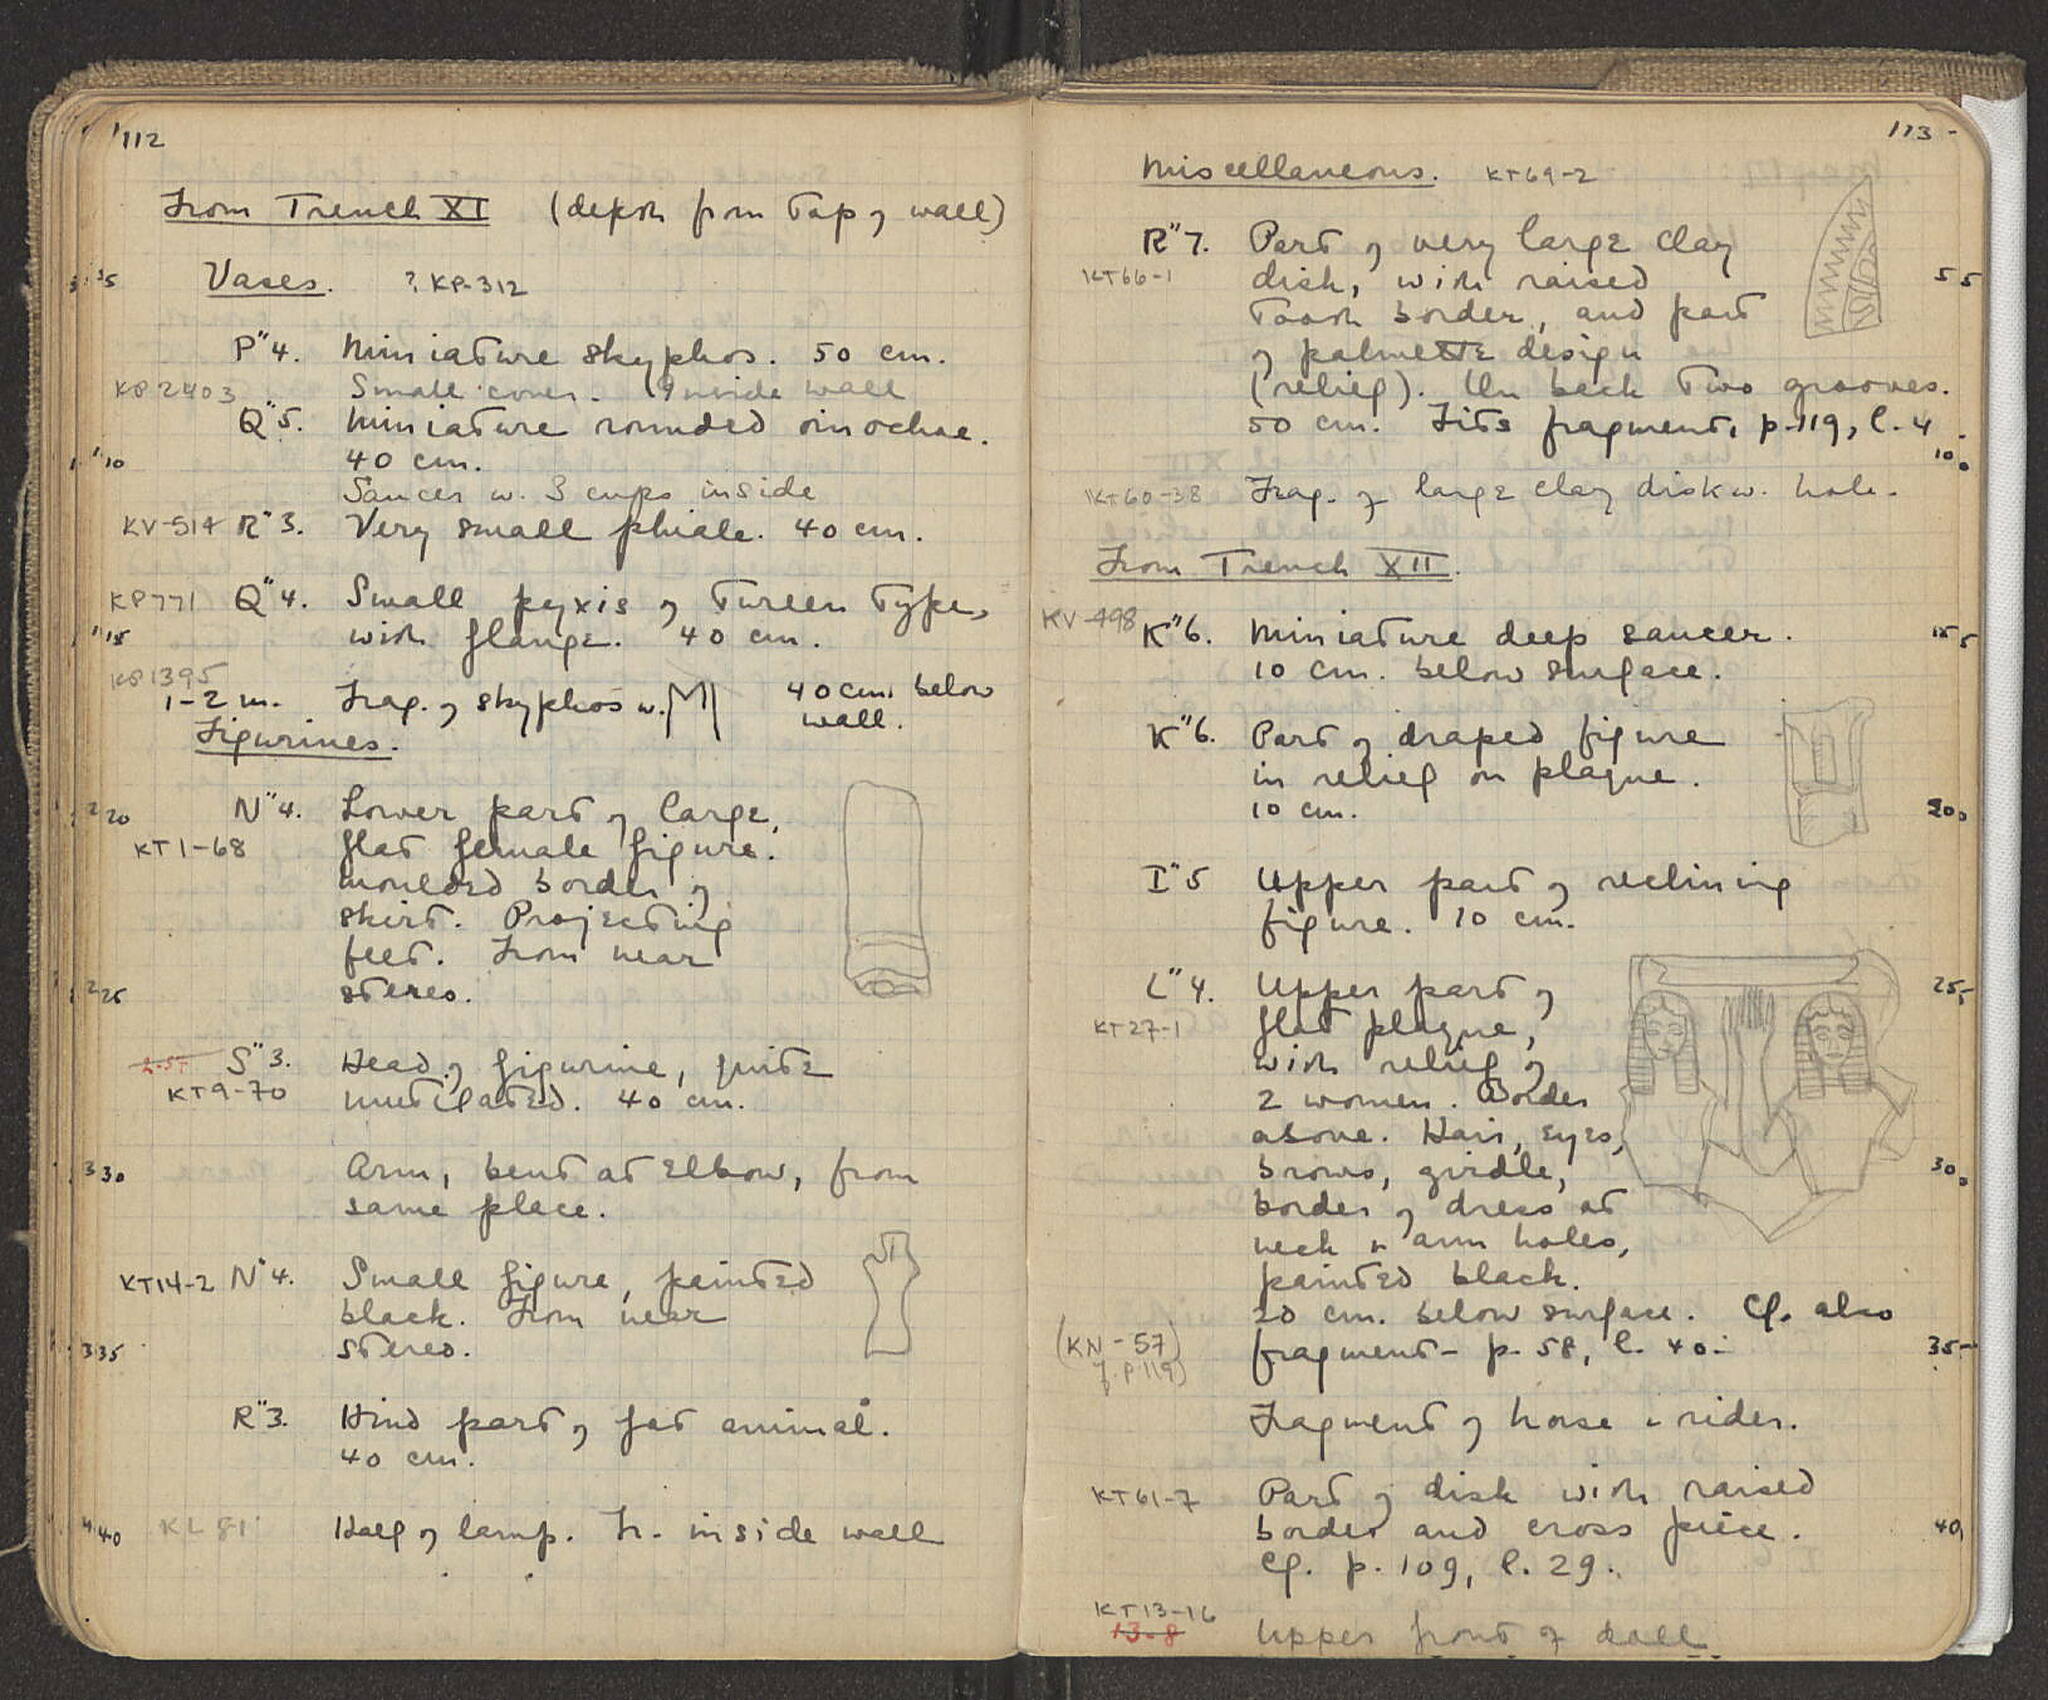 112
From Trench XI (depth from top of wall)
Vases. ? KP-312
5
P"4. Miniature skyphos. 50 cm.
KP2403 Small cover. Inside wall
Q"5. Miniature rounded oinochoe.
10 40 cm.
Saucer w. 3 cups inside
KV-514 R"3. Very small phiale. 40 cm.
KP771 Q"4. Small pyxis of tureen type,
15 with flange. 40 cm.
KP1395
1-2 m. Frag. of skyphos w. 40 cm. below
wall.
Figurines.
20 N"4. Lower part of large,
KT1-68 flat female figure.
moulded border of
skirt. Projecting
feet. From near
25 stereo.
S"3. Head of figurine, quite
KT9-70 mutilated. 40 cm.
30 Arm, bent at elbow, from
same place.
KT14-2 N"4. Small figure, painted
black. From near
35 stereo.
R"3. Hind part of fat animal.
40 cm.
40 KL 81 Half of lamp. Tr. inside wall
113
Miscellaneous. KT69-2
R"7. Part of very large clay
KT66-1 disk, with raised 5
tooth border, and part
of palmette design
(relief). On back two grooves.
50 cm. Fits fragment, p. 119, l. 4
10
KT60-38 Frag. of large clay disk w. hole.
From Trench XII.
KV-498 K"6. Miniature deep saucer. 15
10 cm. below surface.
K"6. Part of draped figure
in relief on plaque.
10 cm. 20
I"5 Upper part of reclining
figure. 10 cm.
L"4. Upper part of 25
KT27-1 flat plaque,
with relief of
2 women. Border
above. Hair, eyes,
brows, girdle, 30
border of dress at
neck & arm holes,
painted black.
20 cm. below surface. Cf. also
(KN-57) fragment - p. 58, l. 40. 35
cf. p. 119)
Fragment of horse & rider.
KT61-7 Part of disk with raised
border and cross piece. 40
Cf. p. 109, l. 29.
KT13-16
13-8 Upper front of doll